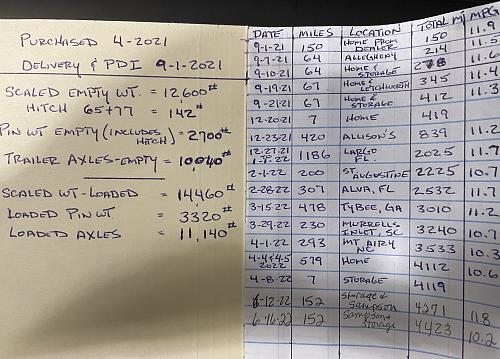 PURCHASED 4-2021
DELIVERY & PDI 9-1-2021
SCALED EMPTY WT. = 12,600#
HITCH 65+77 = 142#
PIN WT EMPTY (INCLUDES HITCH) = 2700#
TRAILER AXLES-EMPTY = 10,040#
SCALED WT-LOADED = 14460#
LOADED PIN WT = 3320#
LOADED AXLES = 11,140#
DATE MILES LOCATION TOTAL MI MPG
9-1-21 150 HOME FROM DEALER 150 11.9
9-7-21 64 ALLEGHENY 214 11.5
9-10-21 64 HOME & STORAGE 278 11.6
9-19-21 67 HOME & LETCHWORTH 345 11.4
9-21-21 67 HOME & STORAGE 412 11.3
12-20-21 7 HOME 419
12-23-21 420 ALLISON'S 839 11.2
12-27-21 1-8-22 1186 LARGO FL. 2025 11.7
2-1-22 200 ST. AUGUSTINE 2225 10.7
2-28-22 307 ALVA, FL 2532 11.7
3-15-22 478 TYBEE, GA 3010 11.2
3-29-22 230 MURRELLS INLET, SC 3240 10.7
4-1-22 293 MT. AIRY NC 3533 10.3
4-4 & 4-5 2022 579 HOME 4112 10.6
4-8-22 7 STORAGE 4119
6-12-22 152 Storage & Sampson 4271 11.8
6-16-22 152 Sampson & Storage 4423 10.2